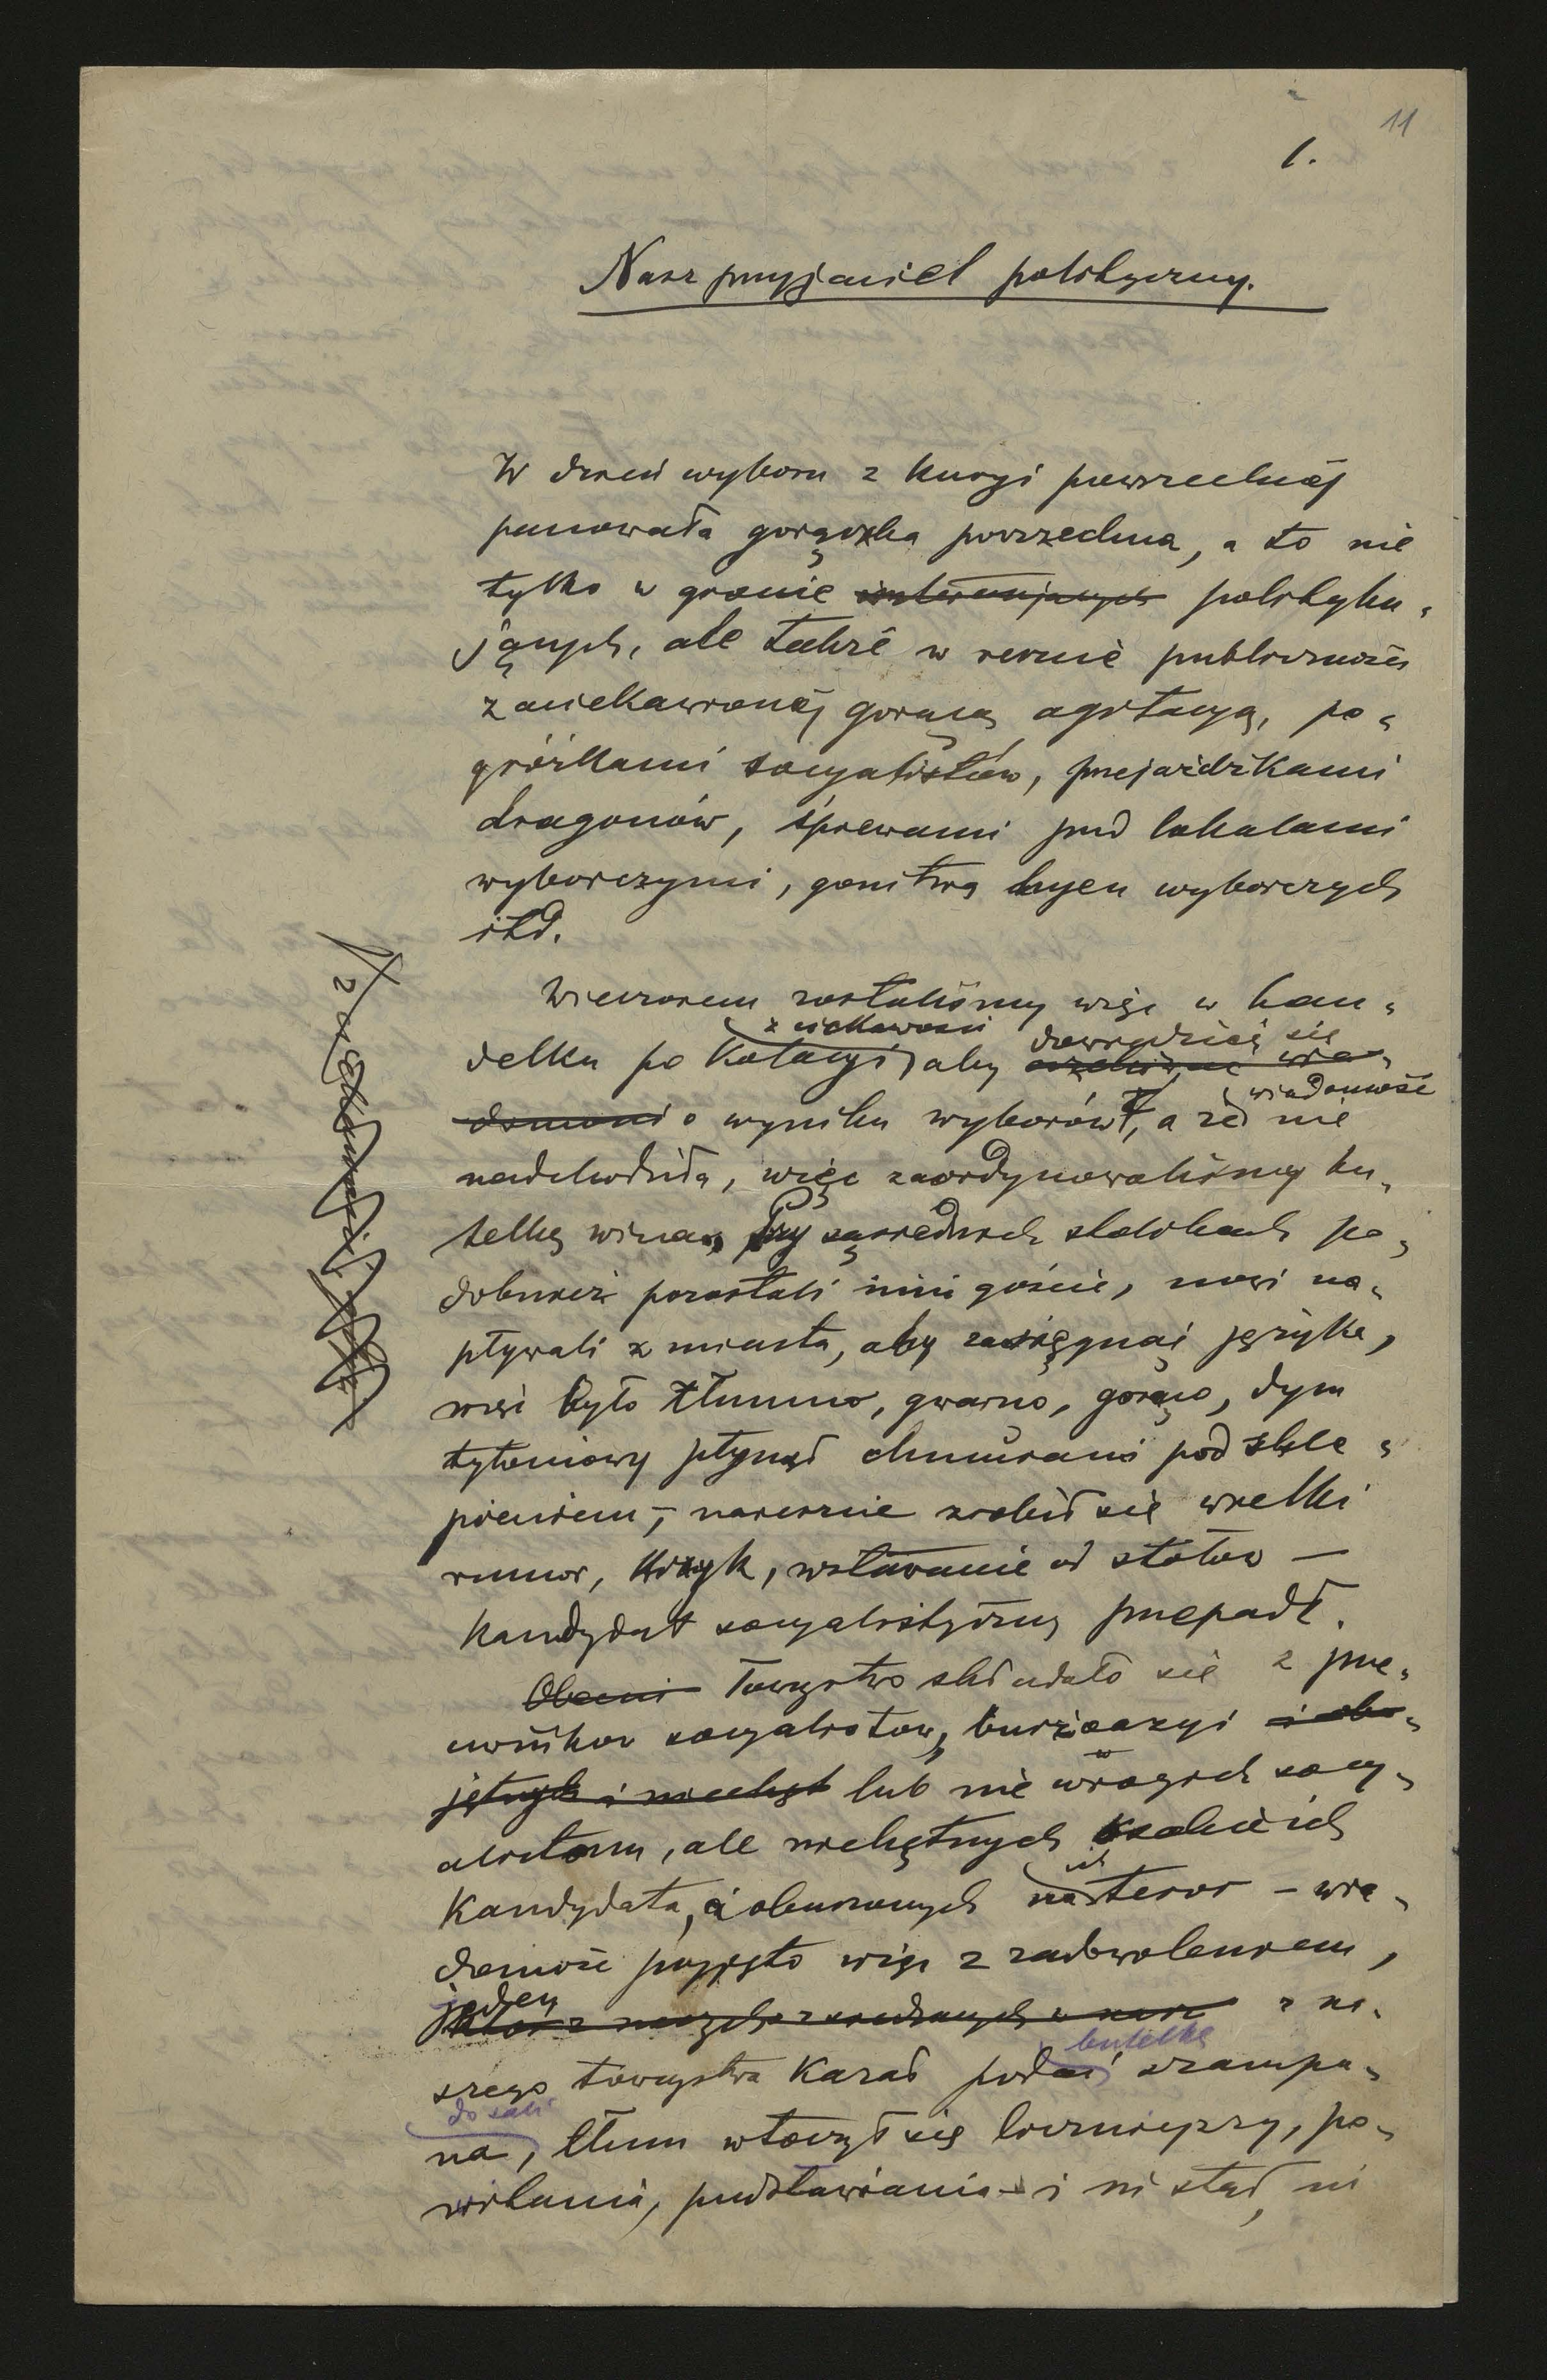 11
1.
Nasz przyjaciel polityczny.
W dzień wyboru z kuryi powszechnéj
panowała gorączka powszechna, a to nie
tylko w gronie interesujących polityku-
jących, ale także w sercu publiczności
zaciekawionéj gorącą agitacyą, po-
gróżkami socyalistów, przejażdżkami
dragonów, śpiewami pod lokalami
wyborczymi, gonitwą hyen wyborczych
itd.
Wieczorem zostaliśmy więc w han-
z ciekawości dowiedzieć się
delku po kolacyi, aby wia-
wiadomość
domości o wyniku wyborów, a że nie
nadchodziła, więc zaordynowaliśmy bu-
telkę wina. Przy sąsiednich stolikach po-
dobnież pozostali inni goście, nowi na-
pływali z miasta, aby zasięgnąć języka,
więc było tłumno, gwarno, gorąco, dym
tytoniowy płynął chmurami pod skle-
pieniem, – nareszcie zrobił się wielki
rumor, krzyk, wstawanie od stołów —
Kandydat socyalistyczny przepadł.
Obecni Towarzystwo składało się z prze-
ciwników socyalistów, burżoazyi i obo-
jętnych i niechęt lub nie wrogich socy-
alistom, ale niechętnych
ich
kandydata, i oburzonych na teror – wia-
domość przyjęto więc z zadowoleniem,
jeden
z na-
butelkę
szego towarzystwa kazał podać szampa-
do sali
na, tłum wtoczył się liczniejszy, po-
witania, przedstawiania – i ni stąd, ni